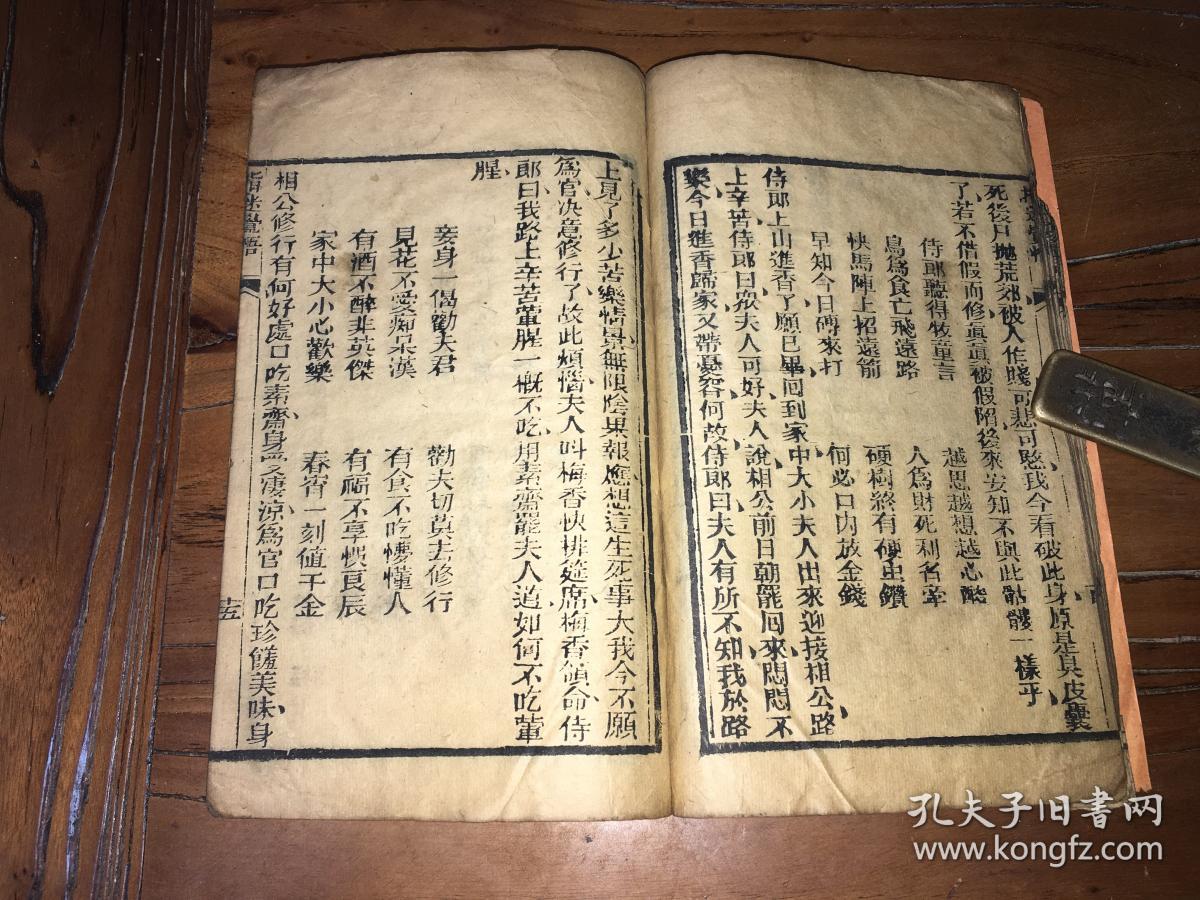 死後尸抛荒郊被人作賤可悲可愍我今看破此身原是臭皮囊
了若不借假而修眞眞被假陷後來安知不與此骷髏一樣乎
侍郎聽得牧童言　越思越想越心酸
鳥爲食亡飛遠路　人爲財死利名牽
快馬陣上招遠箭　硬樹終有硬虫鑽
早知今日磚來打　何必口內放金錢
侍郎上山進香了願已畢回到家中大小夫人出來迎接相公路
上辛苦侍郎曰衆夫人可好夫人說相公前日朝罷回來悶悶不
樂今日進香歸家又帶憂容何故侍郎曰夫人有所不知我於路
上見了多少苦樂情景無限陰果報應想這生死事大我今不願
爲官決意修行了故此煩惱夫人叫梅香快排筵席梅香領命侍
郎曰我路上辛苦葷腥一概不吃用素齋罷夫人道如何不吃葷
腥
妾身一偈勸夫君　勸夫切莫去修行
見花不愛痴呆漢　有食不吃懞懂人
有酒不醉非英傑　有福不享悞良辰
家中大小心歡樂　春宵一刻値千金
相公修行有何好處口吃素齋身受凄涼爲官口吃珍饈美味身
指迷覺悟
十五
孔夫子旧书网
www.kongfz.com